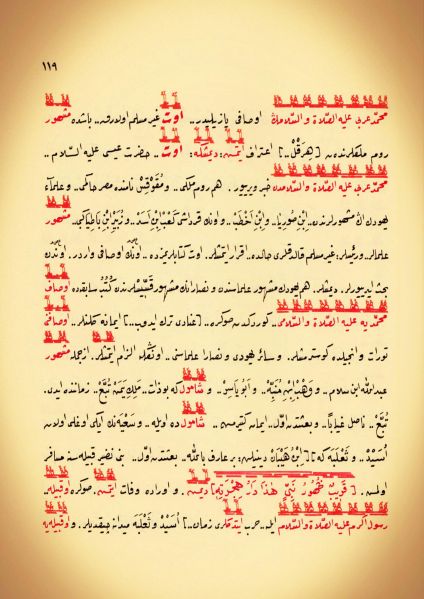 ١١٩
محمّد عربى عليه الصّلاة والسّلامڭ اوصافى يازيليدر.. اوت غير مسلم اولارق.. باشده مشهور
روم ملكلرندن [هِرَقْلْ..] اعتراف ايتمش؛ ديمشكه: اوت.. حضرت عيسى عليه السّلام..
محمّد عربى عليه الصّلاة والسّلامدن خبر ويرييور. هم روم ملكى.. و مُقَوْقِسْ نامنده مصر حاكمى.. و علمآء
يهودڭ اڭ مشهورلرندن.. ابنِ صُورِيا.. و ابنِ اَخْطَبْ.. و اونڭ قرداشى كَعْبْ ابنِ اَسَدْ.. و زُبَيْر ابنِ بَاطِيَا كبى.. مشهور
علمالر.. و رئيسلر؛ غير مسلم قالدقلرى حالده.. اقرار ايتمشلر. اوت كتابلريمزده.. اونڭ اوصافى واردر. اوندن
بحث ايدييورلر. ديمشلر. هم يهودڭ مشهور علماسندن و نصارانڭ مشهور قسّيسلرندن كُتُبِ سابقه‌ده اوصافِ
محمّديه عليه الصّلاة والسّلامى.. كوردكدن صوڭره.. [عنادى ترك ايدوب..] ايمانه كلنلر.. اوصافى
تورات و انجيلده كوسترمشلر. و سائر يهودى و نصارا علماسنى.. اونڭله الزام ايتمشلر. ازجمله مشهور
عبدالله ابن سلام.. و وَهْب ابن مُنَبِّهْ.. و اَبُو يَاسِرْ.. و شامول كه بو ذات.. مَلِكِ يَمَنْ تُبَّعْ.. زماننده ايدى.
تُبَّعْ.. ناصل غياباً.. و بعثتدن اوّل.. ايمان كتيرمش.. شامول ده اويله.. و سَعْيَه‌نڭ ايكى اوغلى اولان
اُسَيْدْ.. و ثَعْلَبَه كه [ابن هَيْبَان دينيلن؛ بر عارف باللّه.. بعثتدن اوّل.. بنى نضير قبيله‌سنه مسافر
اولمش. [قَرِيبٌ ظُهُورُ نَبِىٍّ هٰذَا دَارُ هِجْرَتِهِ] ديمش. و اوراده وفات ايتمش. صوڭره او قبيله..
رسول اكرم عليه الصّلاة والسّلام ايله.. حرب ايتدكلرى زمان..] اُسَيْدْ و ثَعْلَبَه ميدانه چيقديلر. و او قبيله‌يه